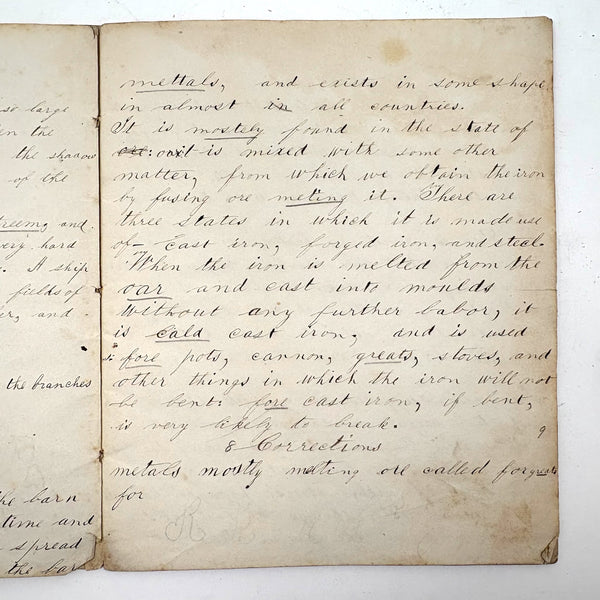 so large
en the
the shadows
of the
treem, and
very hard
. A ship
fields of
er, and
the branches
the barn
time and
spread
the bar
mettals, and exists in some shape
in almost in all countries.
It is mostely found in the state of
ore: is mixed with some other
matter, from which we obtain the iron
by fusing ore melting it. There are
three states in which it is made use
of— Cast iron, forged iron, and steel.
When the iron is melted from the
oar and cast into moulds
without any further babor, it
is cald cast iron, and is used
fore pots, cannon, greats, stoves, and
other things in which the iron will not
be bent: fore cast iron, if bent,
is very likely to break.
9
8 Corrections
metals mostly melting ore called for greats
for